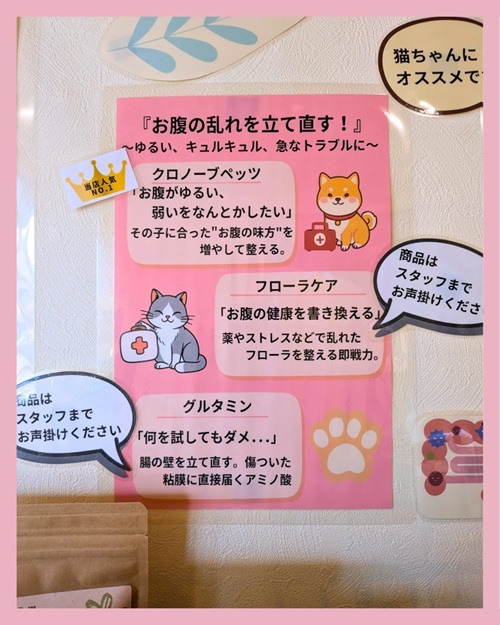 猫ちゃんに
オススメで
『お腹の乱れを立て直す！』
～ゆるい、キュルキュル、急なトラブルに～
当店人気
NO.1
クロノーブペッツ
「お腹がゆるい、
弱いをなんとかしたい」
その子に合った"お腹の味方"を
増やして整える。
商品は
スタッフまで
お声掛けくださ
フローラケア
「お腹の健康を書き換える」
薬やストレスなどで乱れた
フローラを整える即戦力。
商品は
スタッフまで
お声掛けください
グルタミン
「何を試してもダメ...」
腸の壁を立て直す。傷ついた
粘膜に直接届くアミノ酸